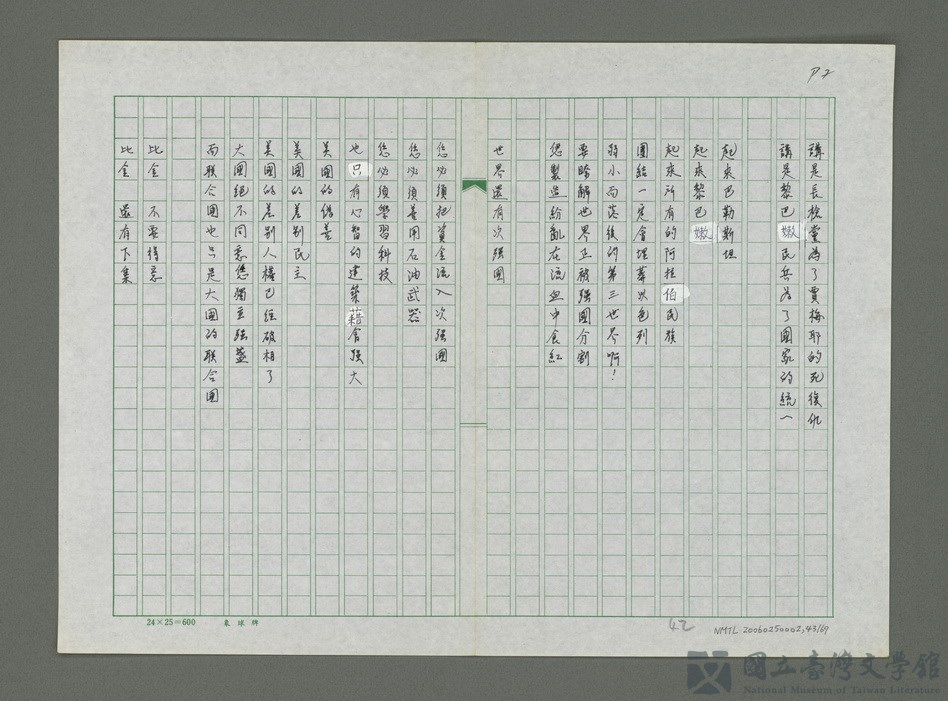 P2
講是長槍黨為了賈梅耶的死復仇
講是黎巴嫩民兵為了國家的統一
起來巴勒斯坦
起來黎巴嫩
起來所有的阿拉伯民族
團結一定會埋葬以色列
弱小而落後的第三世界啊！
要瞭解世界正被強國分割
您製造紛亂在流血中食紅
世界還有次強國
您必須把資金流入次強國
您必須善用石油武器
您必須學習科技
也只有心智的建築藉會強大
美國的偽善
美國的差別民主
美國的差別人權已經破相了
大國絕不同意您獨立強盛
而聯合國也只是大國的聯合國
比金 不要得意
比金 還有下集
24×25=600
42
NMTL 20060250002,43/69
國立臺灣文學館
National Museum of Taiwan Literature